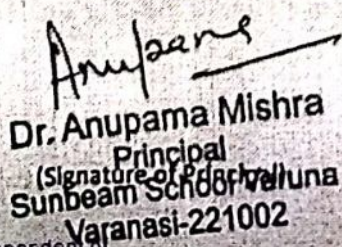 Anupama
Dr. Anupama Mishra
Principal
(Signature of Principal)
Sunbeam School Varuna
Varanasi-221002